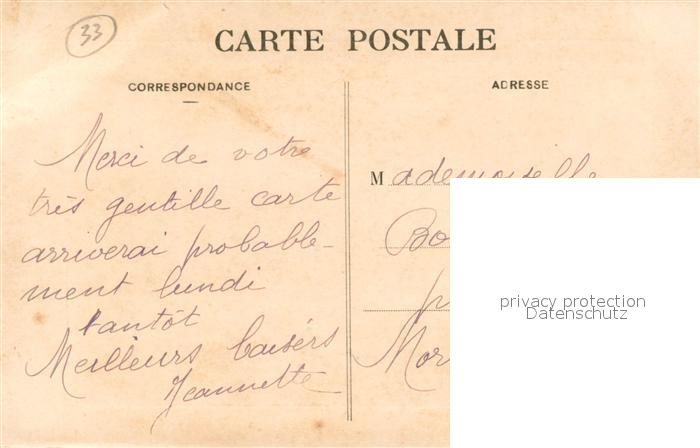 33
CARTE POSTALE
CORRESPONDANCE
ADRESSE
Merci de votre
très gentille carte
arriverai probable-
ment lundi
tantôt
Meilleurs baisers
Jeannette
Mademoiselle
privacy protection
Datenschutz